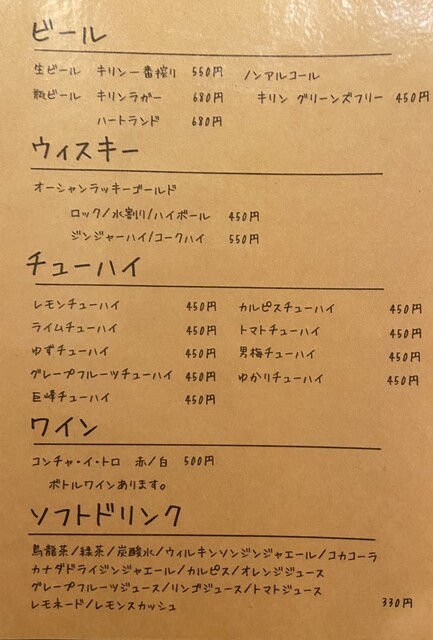 ビール
生ビール キリン一番搾り 550円 ノンアルコール
瓶ビール キリンラガー 680円 キリン グリーンズフリー 450円
ハートランド 680円
ウィスキー
オーシャンラッキーゴールド
ロック/水割り/ハイボール 450円
ジンジャーハイ/コークハイ 550円
チューハイ
レモンチューハイ 450円 カルピスチューハイ 450円
ライムチューハイ 450円 トマトチューハイ 450円
ゆずチューハイ 450円 男梅チューハイ 450円
グレープフルーツチューハイ 450円 ゆかりチューハイ 450円
巨峰チューハイ 450円
ワイン
コンチャ・イ・トロ 赤/白 500円
ボトルワインあります。
ソフトドリンク
烏龍茶/緑茶/炭酸水/ウィルキンソンジンジャエール/コカコーラ
カナダドライジンジャエール/カルピス/オレンジジュース
グレープフルーツジュース/リンゴジュース/トマトジュース
レモネード/レモンスカッシュ 330円